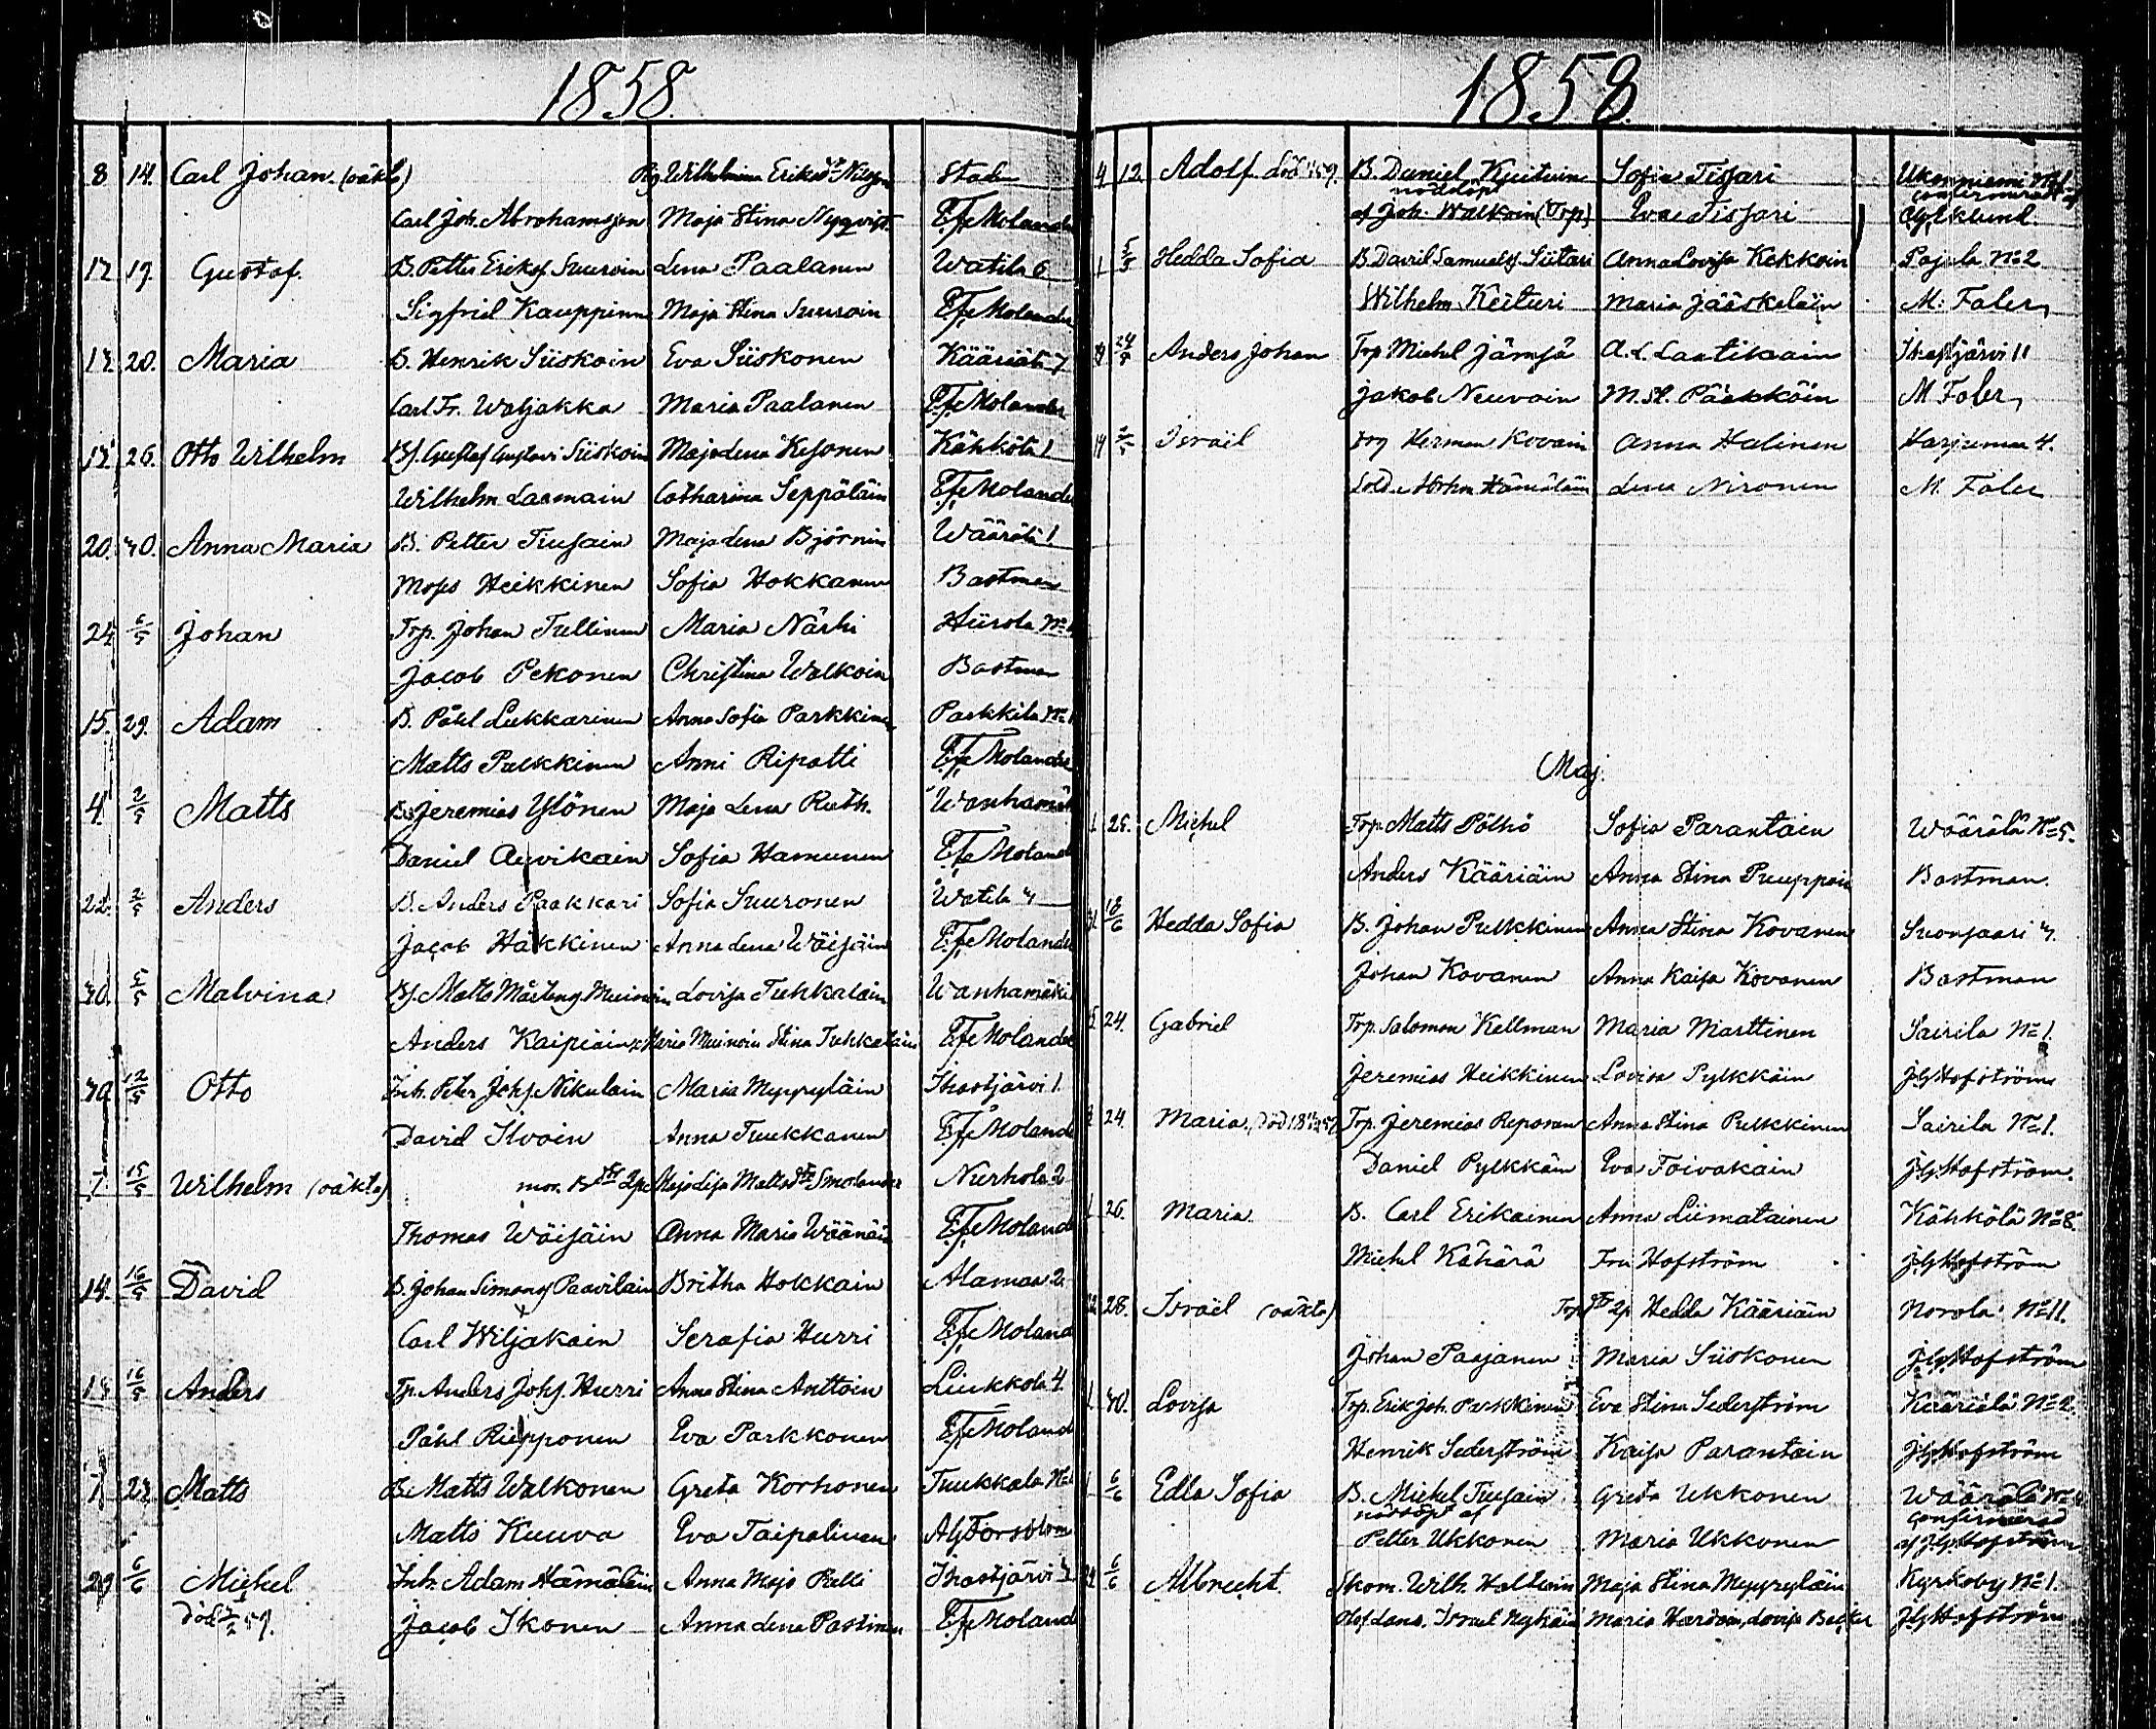 1858.
8 14. Carl Johan. (oäkta) Pig. Wilhelmina Eriksdr Nilsson Stab
Carl Joh. Abrahamsson Maja Stina Nyqvist Efr Molander
12 19. Gustaf. B. Petter Eriks. Suuroin Lena Paalanen Watila 6
Sigfrid Kauppinen Maja Stina Suuroin Efr Molander
13 20. Maria B. Henrik Siiskoin Eva Siiskonen Kääriälä 7
Carl Fr. Waljakka Maria Paalanen Efr Molander
13 26. Otto Wilhelm Bs. Gustaf Gustavi Siiskoin Majadena Kesonen Kähkölä 1
Wilhelm Laamain Catharina Seppäläin Efr Molander
20. 30. Anna Maria B. Petter Tiusain Maja Lena Björnin Wäärälä 1.
Mojs Heikkinen Sofia Hokkanen Bastman
24 6/5 Johan Trp. Johan Tullinen Maria Närhi Hiirola No
Jacob Pekonen Christina Walkoin Bastman
15. 29. Adam B. Påhl Liukkarinen Anna Sofia Parkkinen Parkkila No 1
Matts Pulkkinen Anni Ripatti Efr Molander
4. 2/5 Matts Bs Jeremias Ylönen Maja Lena Ruth. Wanhamäki
Daniel Auvikain Sofia Hamunen Efr Molander
22. 2/5 Anders B. Anders Paakkari Sofia Suuronen Watila 3
Jacob Häkkinen Anna Lena Wäisäin Efr Molander
30. 5/5 Malvina Bs. Matts Mårtens. Muinoin Lovisa Tuhkalain Wanhamäki
Anders Kaipiain Maria Muinoin Stina Tuhkalain Efr Molander
30 12/5 Otto Inh. Peter Johs. Nikulain Maria Myyryläin Ihastjärvi 1.
David Ilvoin Anna Tuukkanen Efr Molander
7. 15/5 Wilhelm (oäkta) mor. Maja Lisa Mattsdr Smolander Nurhola 2
Thomas Wäisäin Anna Maria Wäänäin Efr Moland
14. 16/5 David B. Johan Simons Paavilain Britha Hokkain Alamaa 2
Carl Wiljakain Serafia Hurri Efr Moland
18 16/5 Anders Tp. Anders Johs. Hurri Anna Stina Anttoin Liukkola 4
Påhl Riepponen Eva Parkkonen Efr Moland
7 23 Matts B. Matts Walkonen Greta Korhonen Tuukkala No
Matts Kuuva Eva Taipalinen Alf Forsblom
29 6/6 Michel Inh. Adam Hämäläin Anna Maja Pelli Ihastjärvi 3
död 59. Jacob Ikonen Anna Lena Pastinen Efr Moland
1858.
4 12. Adolf död 59. B. Daniel Kuituin Sofia Tissari Ukonniemi No 1
nöddöpt af Joh. Walkoin (Trp) Eva Tissari confirmerad af Eklund.
1 5/5 Hedda Sofia B. David Samuels. Siitari Anna Lovisa Kekkoin Pajula No 2
Wilhelm Keituri Maria Jääskeläin M. Foler
24/5 Anders Johan Trp. Michel Jämsä A. L. Laatikain Ihastjärvi 11
Jakob Neuvoin M. St. Pääkköin M Foler
14 2/5 Israël Trp Herman Kovain Anna Halinen Harjumaa 4.
Sold. Abrhm Hämäläin Lena Nironen M. Foler
Maj.
25. Michel Trp. Matts Pölhö Sofia Parantain Wäärälä No 5.
Anders Kääriäin Anna Stina Puuppoin Bastman.
18/6 Hedda Sofia B. Johan Pulkkinen Anna Stina Kovanen Suonsaari 3.
Johan Kovanen Anna Kaisa Kovanen Bastman
24. Gabriel Trp. Salomon Kellman Maria Marttinen Sairila No 1.
Jeremias Heikkinen Lovisa Pylkkäin J.G. Hofström
24. Maria, död Trp. Jeremias Reponen Anna Stina Pulkkinen Sairila No 1.
Daniel Pylkkäin Eva Toivakain J.G. Hofström.
26. Maria. B. Carl Erikainen Anna Liimatainen Kähkölä No 8.
Michel Kähärä Fru Hofström J.G. Hofström
28. Israël (oäkta) Hedda Kääriäin Norola No 11.
Johan Paajanen Maria Siiskonen J.G. Hofström
30. Lovisa Trp. Erik Joh. Parkkinen Eva Stina Sederström Kääriälä No 2.
Henrik Sederström Kaisa Parantain J.G. Hofström
6/6 Edla Sofia B. Michel Tiusain Greta Ukkonen Wäärälä No
nöddöpt af Petter Ukkonen Maria Ukkonen confirmerad af J.G. Hofström
6/6 Albrecht. Skom. Wilh. Holtoin Maja Stina Myyryläin Kyrkoby No 1.
Israel Nykäin Maria Hardoin, Lovisa Becker J.G. Hofström